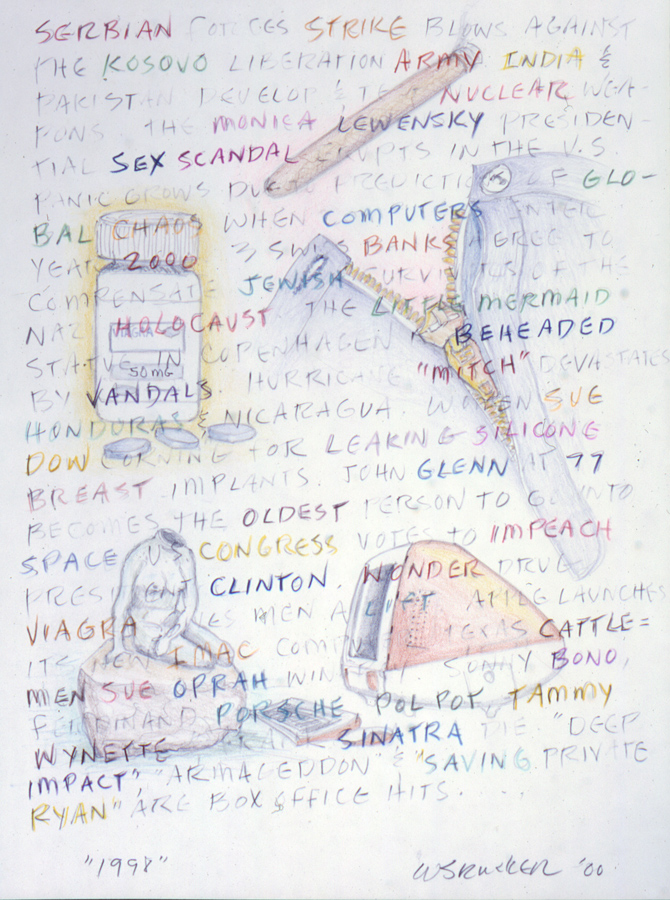 SERBIAN FORCES STRIKE BLOWS AGAINST
THE KOSOVO LIBERATION ARMY. INDIA &
PAKISTAN DEVELOP & TEST NUCLEAR WEA-
PONS. THE MONICA LEWENSKY PRESIDEN-
TIAL SEX SCANDAL ERUPTS IN THE U.S.
PANIC GROWS DUE TO PREDICTIONS OF GLO-
BAL CHAOS WHEN COMPUTERS ENTER
YEAR 2000. 3 SWISS BANKS AGREE TO
COMPENSATE JEWISH SURVIVORS OF THE
NAZI HOLOCAUST. THE LITTLE MERMAID
STATUE IN COPENHAGEN IS BEHEADED
50MG
BY VANDALS. HURRICANE "MITCH" DEVASTATES
HONDURAS & NICARAGUA. WOMEN SUE
DOW CORNING FOR LEAKING SILICONE
BREAST IMPLANTS. JOHN GLENN AT 77
BECOMES THE OLDEST PERSON TO GO INTO
SPACE. U.S. CONGRESS VOTES TO IMPEACH
PRESIDENT CLINTON. WONDER DRUG
VIAGRA GIVES MEN A LIFT. APPLE LAUNCHES
ITS NEW IMAC COMPUTER. TEXAS CATTLE=
MEN SUE OPRAH WINFREY. SONNY BONO,
FERDINAND PORSCHE, POL POT, TAMMY
WYNETTE & FRANK SINATRA DIE. "DEEP
IMPACT", "ARMAGEDDON" & "SAVING PRIVATE
RYAN" ARE BOX OFFICE HITS. . . .
"1998" WSRUCKER '00